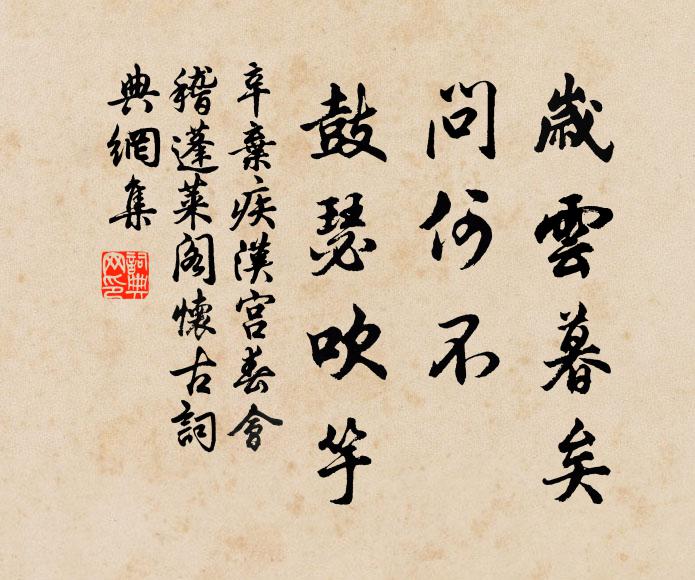 歲雲暮矣
問何不
鼓瑟吹竽
辛棄疾漢宮春會
稽蓬萊閣懷古詞
典網集
詞典
网印